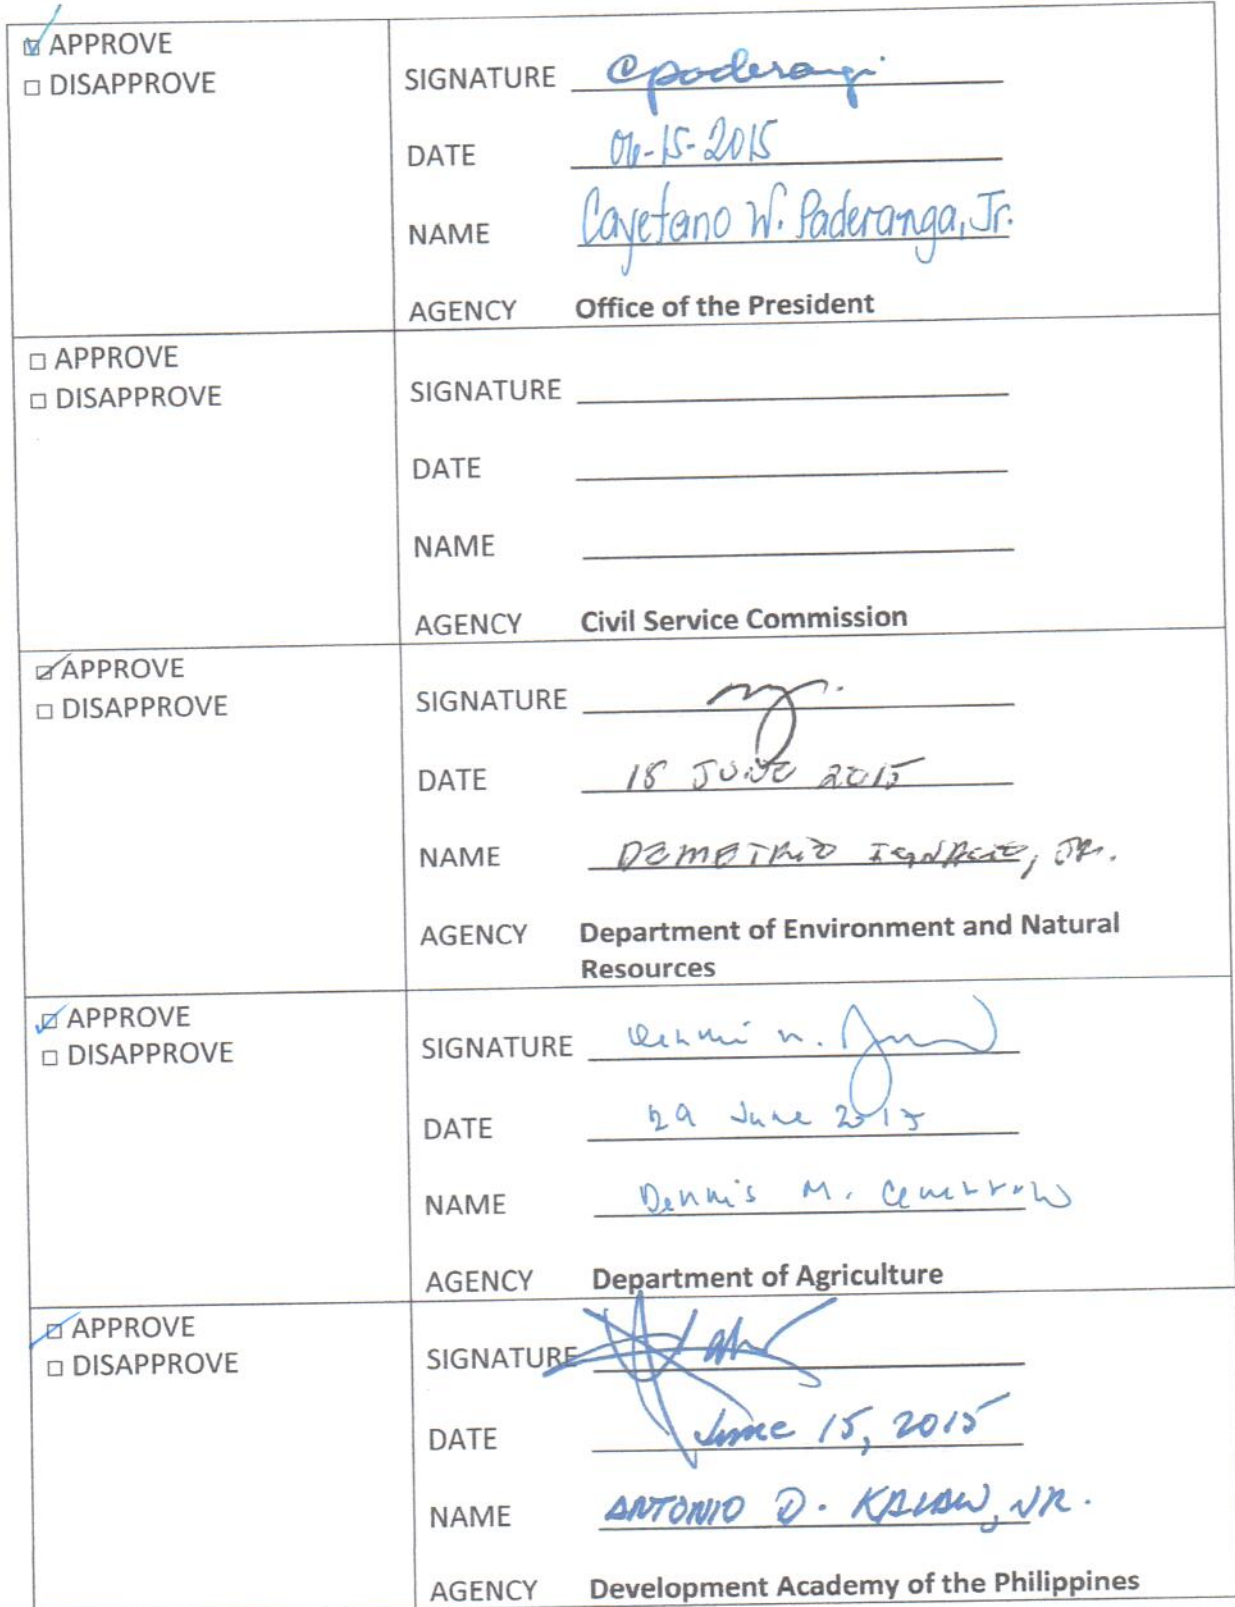 ☑ APPROVE
□ DISAPPROVE
SIGNATURE
DATE 06-15-2015
NAME Cayetano W. Paderanga, Jr.
AGENCY Office of the President
□ APPROVE
□ DISAPPROVE
SIGNATURE
DATE
NAME
AGENCY Civil Service Commission
☑ APPROVE
□ DISAPPROVE
SIGNATURE
DATE 15 JUNE 2015
NAME DEMETRIO IGNACIO, JR.
AGENCY Department of Environment and Natural
Resources
☑ APPROVE
□ DISAPPROVE
SIGNATURE
DATE 29 June 2015
NAME Dennis M.
AGENCY Department of Agriculture
☑ APPROVE
□ DISAPPROVE
SIGNATURE
DATE June 15, 2015
NAME ANTONIO D. KALAW, JR.
AGENCY Development Academy of the Philippines